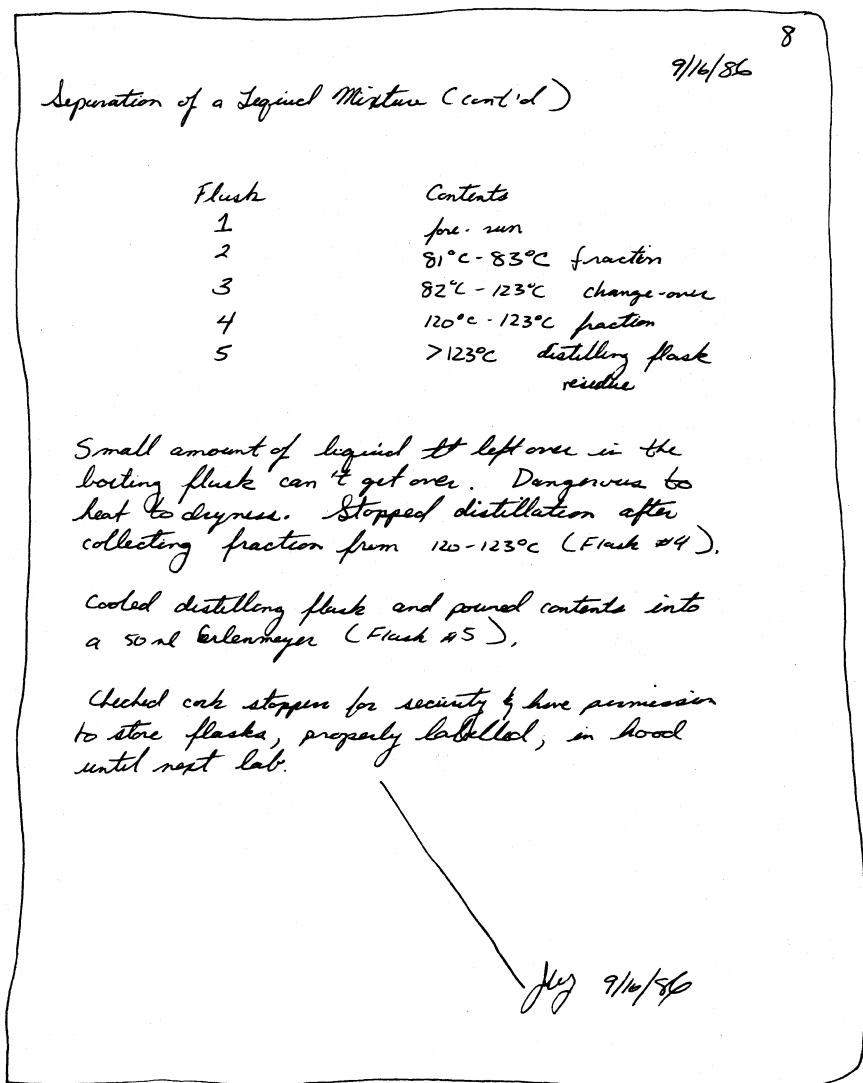 8
9/16/86
Separation of a Liquid Mixture (cont'd)
Flask Contents
1 fore-run
2 81°C-83°C fraction
3 82°C-123°C change-over
4 120°C-123°C fraction
5 >123°C distilling flask
residue
Small amount of liquid left over in the
boiling flask can't get over. Dangerous to
heat to dryness. Stopped distillation after
collecting fraction from 120-123°C (Flask #4).
Cooled distilling flask and poured contents into
a 50 ml Erlenmeyer (Flask #5).
Checked cork stoppers for security & have permission
to store flasks, properly labelled, in hood
until next lab.
9/16/86